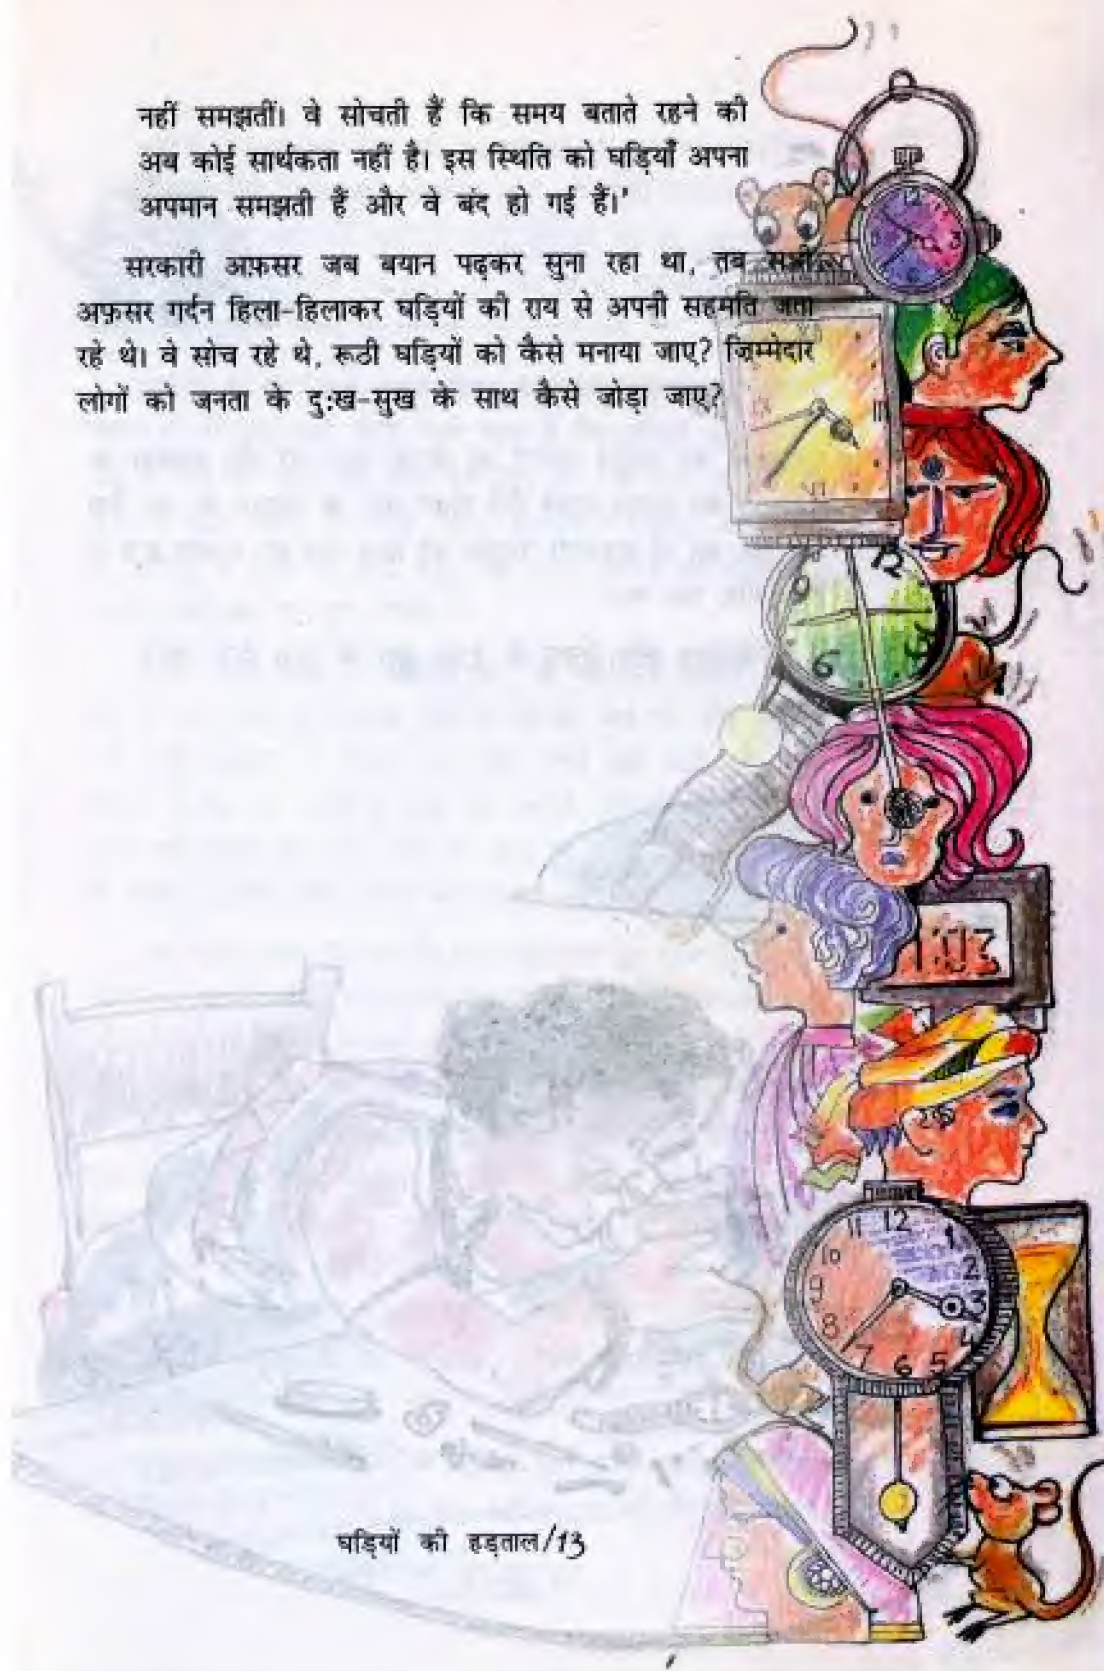 नहीं समझतीं। वे सोचती हैं कि समय बताते रहने की
अब कोई सार्थकता नहीं है। इस स्थिति को घड़ियाँ अपना
अपमान समझती हैं और वे बंद हो गई हैं।'
सरकारी अफ़सर जब बयान पढ़कर सुना रहा था, तब सभी
अफ़सर गर्दन हिला-हिलाकर घड़ियों की राय से अपनी सहमति जता
रहे थे। वे सोच रहे थे, रूठी घड़ियों को कैसे मनाया जाए? ज़िम्मेदार
लोगों को जनता के दु:ख-सुख के साथ कैसे जोड़ा जाए?
12
9
6
11 12 1
10 2
9 3
8 4
7 6 5
घड़ियों की हड़ताल/13